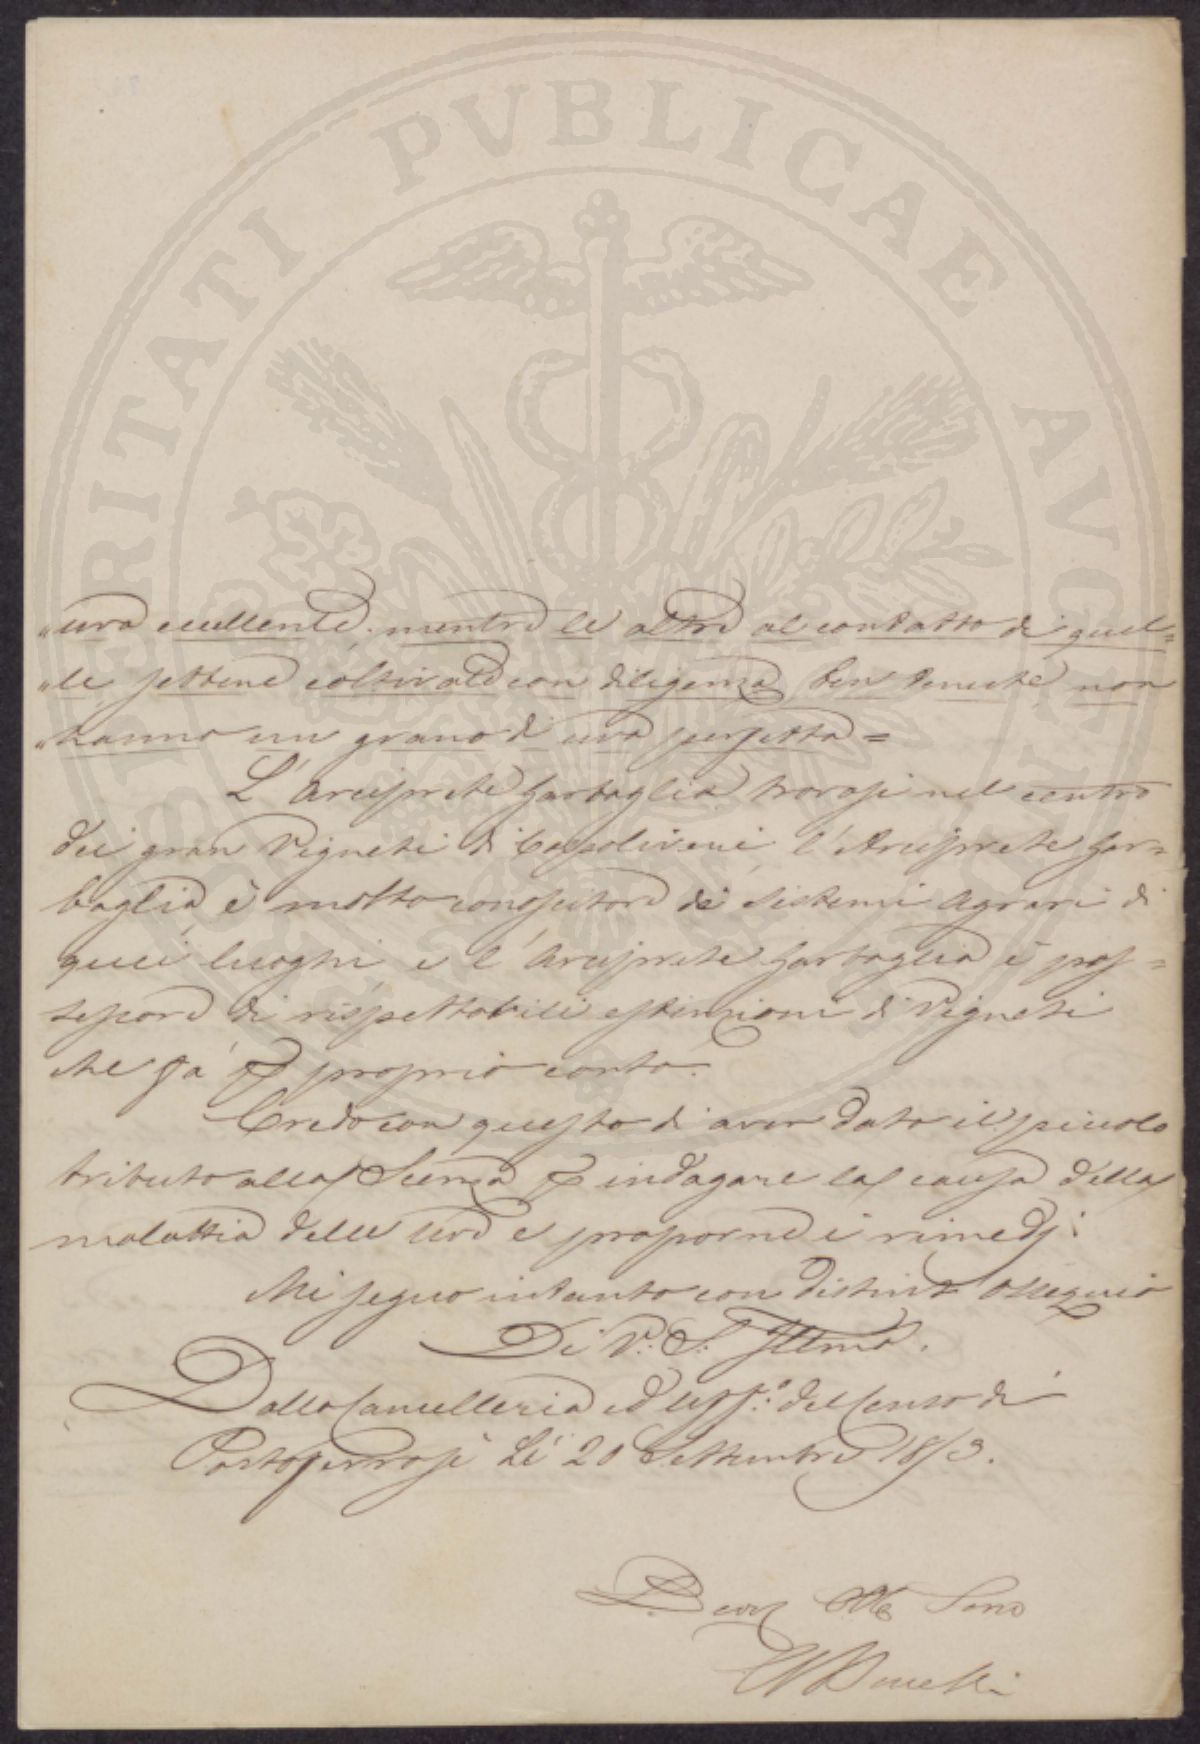 PROSPERITATI PVBLICAE AVGENDAE
„uva eccellente, mentre le altre al contatto di quel=
„le settene coltivate con diligenza, ben tenute non
„hanno un grano di uva perfetta=
L'Arciprete Garbaglia trovasi nel centro
dei gran Vigneti di Capoliveri, l'Arciprete Gar=
baglia è molto conoscitore dei sistemi Agrari di
quei luoghi e l'Arciprete Garbaglia è pos=
sessore di rispettabili estenzioni di Vigneti
che fà p proprio conto.
Credo con questo di aver dato il piccolo
tributo alla Scienza p indagare la causa della
malattia delle Uve e proporne i rimedj.
Mi segno intanto con distinto ossequio
Di V: S: Illma.
Dalla Cancelleria ed Uff:o del Censo di
Portoferrajo Li 20 Settembre 1853.
Devo Obb Servo